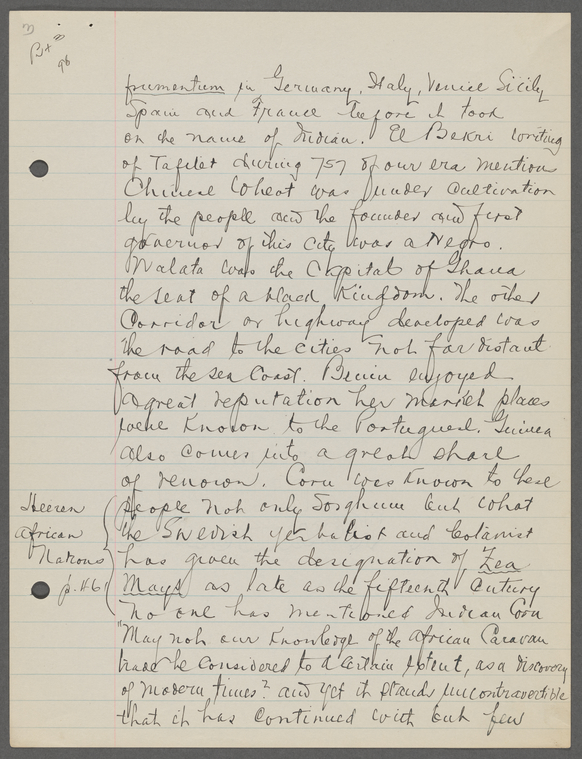 frumentum in Germany, Italy, Venice Sicily
Spain and France before it took
on the name of Indian. El Bekri writing
of Tafilet during 757 of our era mention
Chinese Wheat was under cultivation
by the people and the founder and first
governor of this city was a Negro.
Walata was the Capital of Ghana
the seat of a black Kingdom. The other
Corridor or highway developed was
the road to the cities not far distant
from the sea Coast. Benin enjoyed
a great reputation her market places
were Known to the Portuguese. Guinea
also comes into a great share
of renown. Corn was Known to these
people not only Sorghum but what
Heeren
African
Nations
p. 46
the Swedish herbalist and botanist
has given the designation of Zea
Mays as late as the fifteenth Century
no one has mentioned Indian Corn
"May not our Knowledge of the African Caravan
trade be considered to a certain extent, as a discovery
of modern times? and yet it stands uncontrovertible
that it has continued with but few